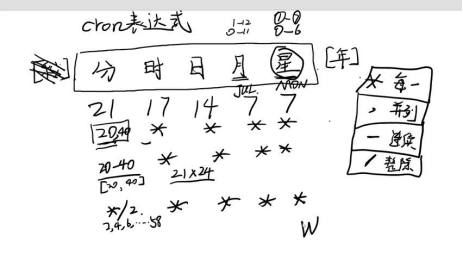 cron表达式
1-12
0-11
0-6
分 时 日 月 星 [年]
JUL MON
21 17 14 7 7
20,40 * * * *
20-40 * * * *
[20,40] 21×24
*/2 * * * *
2,4,6,……58
W
* 每一
, 并列
- 连续
/ 整除